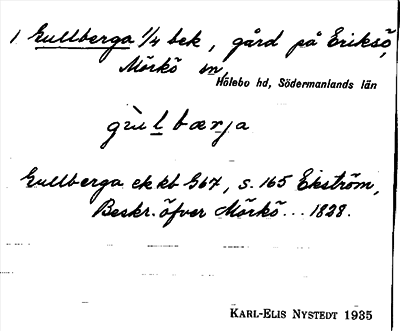 1 Gullberga 1/4 bek, gård på Eriksö,
Mörkö sn, Hölebo hd, Södermanlands län
gu̇l bærja
Gullberga ek kb G67, s. 165 Ekström,
Beskr. öfver Mörkö... 1828.
KARL-ELIS NYSTEDT 1935